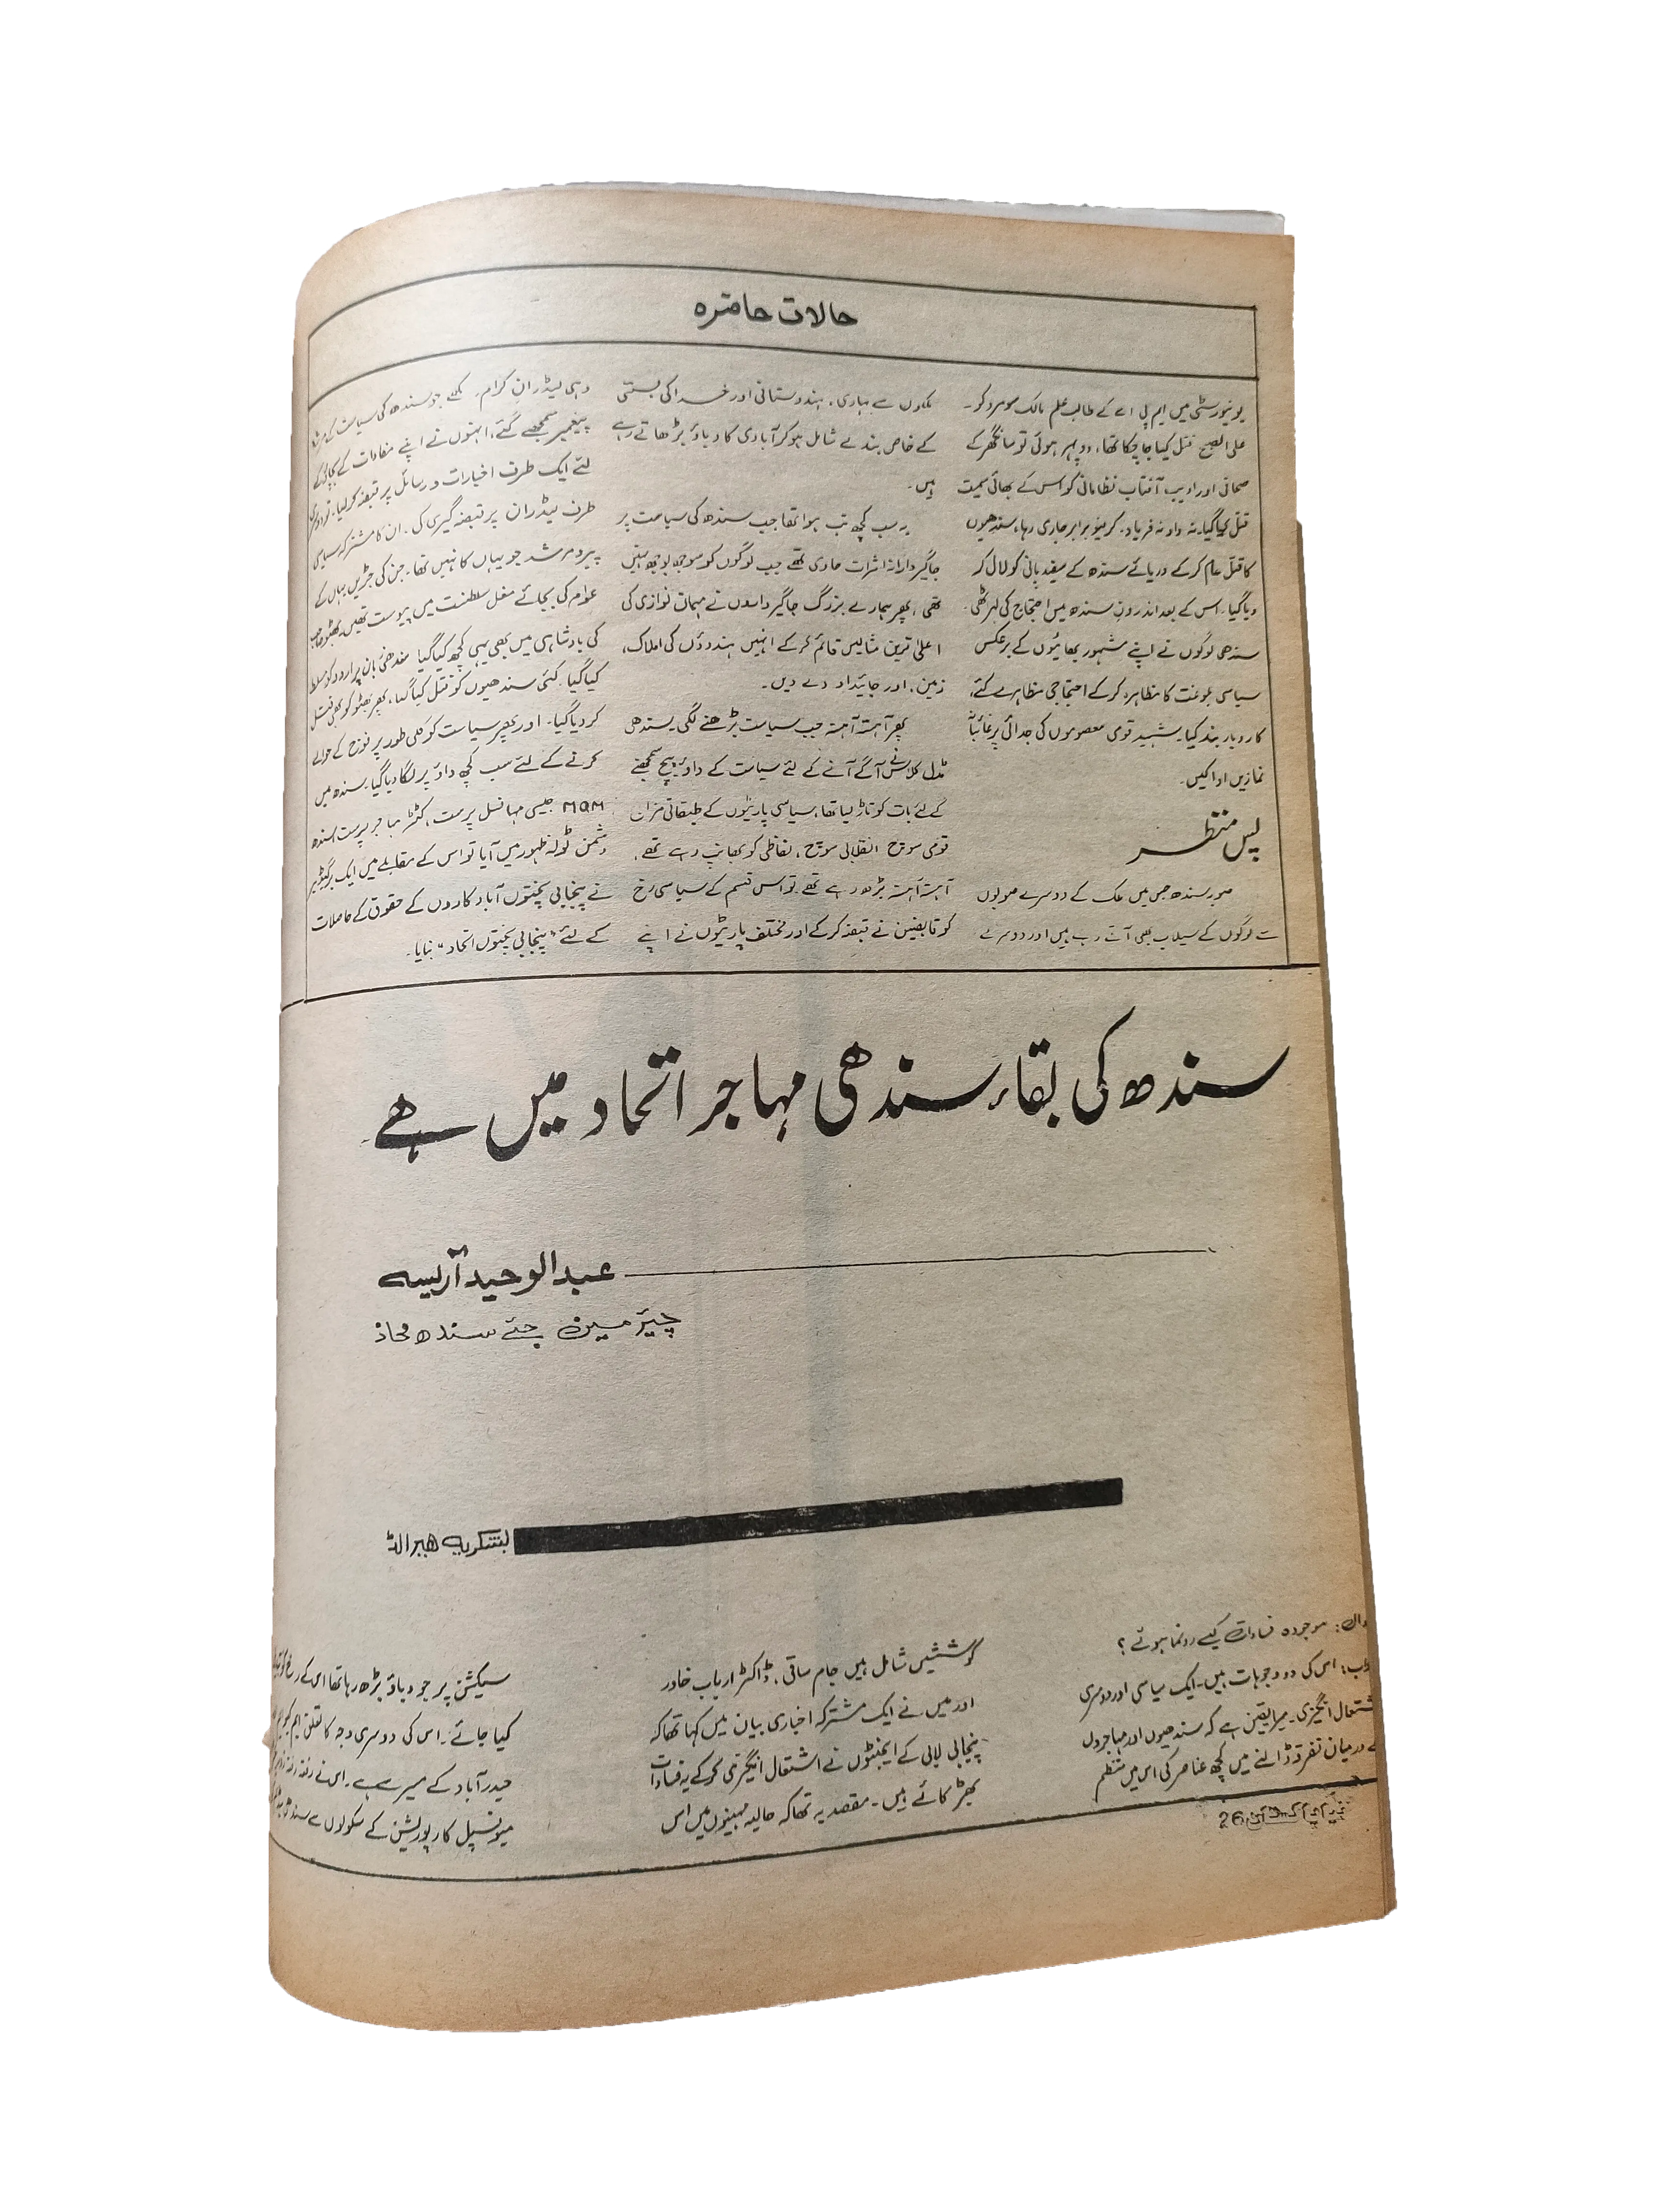 حالات حاضرہ
یونیورسٹی میں ایم پی اے کے طالب علم مالک سومرو کو
علی الصبح قتل کیا جا چکا تھا، دوپہر ہوئی تو سانگھڑ کے
صحافی اور ادیب آفتاب نظامانی کو اس کے بھائی سمیت
قتل کیا گیا۔ نہ داد نہ فریاد۔ کرفیو برابر جاری رہا، سندھیوں
کا قتل عام کرکے دریائے سندھ کے سفید پانی کو لال کر
دیا گیا۔ اس کے بعد اندرون سندھ میں احتجاج کی لہر اٹھی۔
سندھی لوگوں نے اپنے مشہور بھائیوں کے برعکس
سیاسی بلوغت کا مظاہرہ کرکے احتجاجی مظاہرے کئے،
کاروبار بند کیا۔ شہید قومی معصوموں کی جدائی پر غائبانہ
نمازیں ادا کیں۔
پس منظر
صوبہ سندھ جس میں ملک کے دوسرے صوبوں
سے لوگوں کے سیلاب بھی آتے رہے ہیں اور دوسرے
ملکوں سے بہاری، ہندوستانی اور خدا کی بستی
کے خاص بندے شامل ہوکر آبادی کا دباؤ بڑھاتے رہے
ہیں۔
یہ سب کچھ تب ہوا تھا جب سندھ کی سیاست پر
جاگیردارانہ اثرات حاوی تھے جب لوگوں کو سوجھ بوجھ نہیں
تھی، پھر ہمارے بزرگ جاگیرداروں نے مہمان نوازی کی
اعلیٰ ترین مثالیں قائم کرکے انہیں ہندوؤں کی املاک،
زمین، اور جائیداد دے دیں۔
پھر آہستہ آہستہ جب سیاست بڑھنے لگی سندھی
مڈل کلاس نے آگے آنے کے لئے سیاست کے داؤ پیچ سمجھنے
کے لئے بات کو تاڑ لیا تھا، سیاسی پارٹیوں کے طبقاتی مزاج
قومی سوچ انقلابی سوچ، لفاظی کو بھانپ رہے تھے،
آہستہ آہستہ بڑھ رہے تھے تو اس قسم کے سیاسی رخ
کو قابضین نے قبضہ کرکے اور مختلف پارٹیوں نے اپنے
وہی لیڈران کرام، تھے جو سندھ کی سیاست کے
پیغمبر سمجھے گئے، انہوں نے اپنے مفادات کے بچاؤ کے
لئے ایک طرف اخبارات و رسائل پر قبضہ کرلیا۔ تو دوسری
طرف لیڈران پر قبضہ گیری کی۔ ان کا مشترکہ سیاسی
پیر و مرشد جو یہاں کا نہیں تھا۔ جن کی جڑیں یہاں کے
عوام کی بجائے مغل سلطنت میں پیوست تھیں بھٹو صاحب
کی بادشاہی میں بھی یہی کچھ کیا گیا سندھی زبان پر اردو کو مسلط
کیا گیا۔ کئی سندھیوں کو قتل کیا گیا، پھر بھٹو کو بھی قتل
کردیا گیا۔ اور پھر سیاست کو کلی طور پر فوج کے حوالے
کرنے کے لئے سب کچھ داؤ پر لگا دیا گیا۔ سندھ میں
MQM جیسی مہا نسل پرست، کٹر مہاجر پرست سندھ
دشمن ٹولہ ظہور میں آیا تو اس کے مقابلے میں ایک بریگیڈیر
نے پنجابی پختون آبادکاروں کے حقوق کے حاصلات
کے لئے "پنجابی پختون اتحاد" بنایا۔
سندھ کی بقاء سندھی مہاجر اتحاد میں ھے
عبدالوحید آریسہ
چیئرمین جئے سندھ محاذ
بشکریہ ھیرالڈ
موجودہ فسادات کیسے رونما ہوئے؟
اس کی دو وجوہات ہیں۔ ایک سیاسی اور دوسری
اشتعال انگیزی۔ میرا یقین ہے کہ سندھیوں اور مہاجروں
کے درمیان تفرقہ ڈالنے میں کچھ عناصر کی اس میں منظم
کوششیں شامل ہیں جام ساقی، ڈاکٹر ارباب خاور
اور میں نے ایک مشترکہ اخباری بیان میں کہا تھا کہ
پنجابی لابی کے ایجنٹوں نے اشتعال انگیزی کرکے یہ فسادات
بھڑکائے ہیں۔ مقصد یہ تھا کہ حالیہ مہینوں میں اس
سیکشن پر جو دباؤ بڑھ رہا تھا اس کے رخ کو
کیا جائے۔ اس کی دوسری وجہ کا تعلق ایم کیو ایم
حیدرآباد کے میئر سے ہے۔ اس نے رفتہ رفتہ
میونسپل کارپوریشن کے سکولوں سے سندھی
نیا پاکستان 26